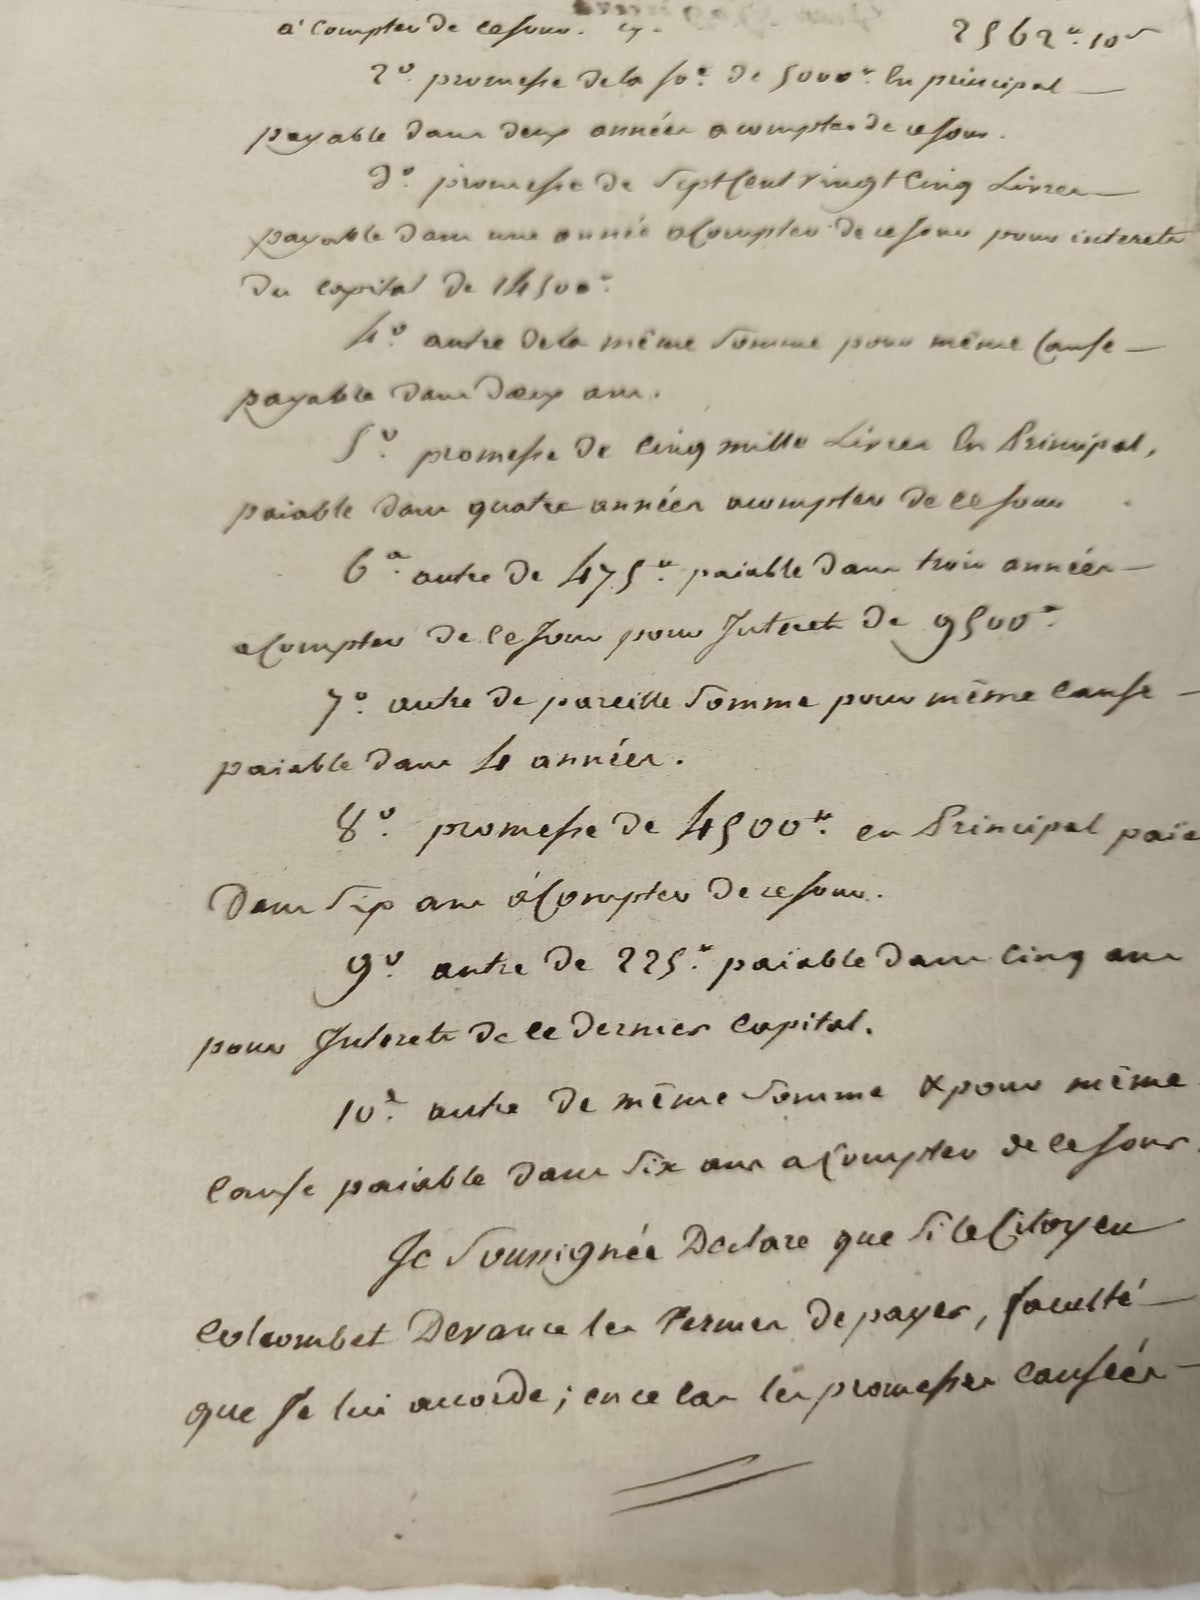 à compter de ce Jour. cy. 2562# 10s
2° promesse de la so.e de 5000# En principal
payable dans deux années a compter de ce Jour.
3° promesse de Sept Cent vingt Cinq Livres
payable dans une année a Compter de ce Jour pour interets
du capital de 14500#
4° autre de la même Somme pour même Cause
payable dans deux ans.
5° promesse de Cinq mille Livres En Principal,
païable dans quatre années a compter de ce Jour
6° autre de 475# païable dans trois années
a Compter de ce Jour pour Interets de 9500#
7° autre de pareille Somme pour même Cause
païable dans 4 années.
8° promesse de 4500# en Principal païa
Dans Six ans à Compter de ce Jour.
9° autre de 225# païable dans Cinq ans
pour Interets de ce dernier Capital.
10° autre de même Somme & pour même
Cause païable dans Six ans a Compter de ce Jour.
Je Soussignée Declare que Si le Citoyen
Colcombet Devance les Termes de payer, faculté
que Je lui accorde; en ce Cas les promesses Causées